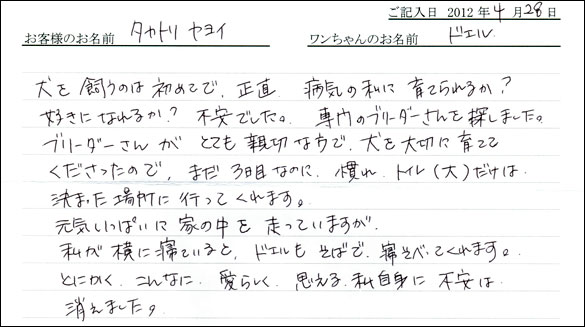 ご記入日 2012年4月28日
お客様のお名前 タカトリ ヤヨイ ワンちゃんのお名前 ドエル
犬を飼うのは初めてで、正直 病気の私に育てられるか?
好きになれるか? 不安でした。専門のブリーダーさんを探しました。
ブリーダーさんが とても親切な方で、犬を大切に育てて
くださったので、まだ3日目なのに、慣れ、トイレ(大)だけは
決まった場所に行ってくれます。
元気いっぱいに家の中を走っていますが、
私が横に寝ていると、ドエルもそばで、寝そべってくれます。
とにかく、こんなに、愛らしく、思える、私自身に不安は
消えました。